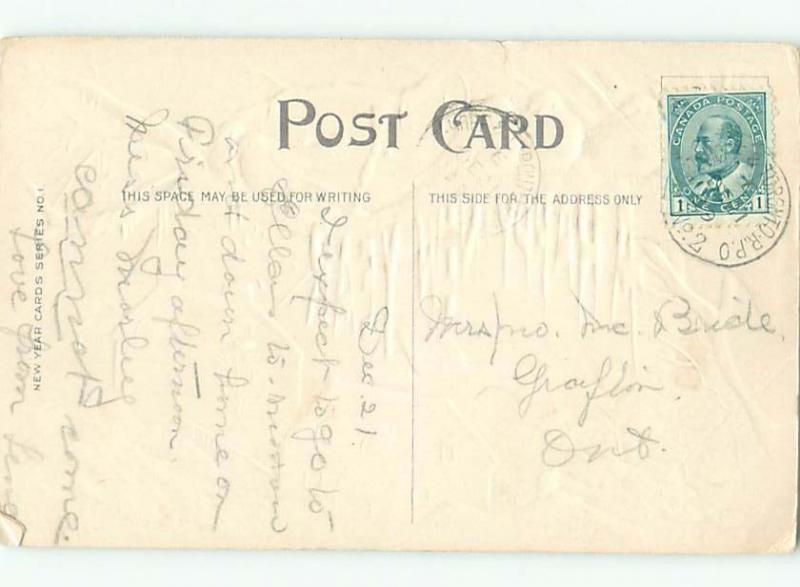 POST CARD
THIS SPACE MAY BE USED FOR WRITING
THIS SIDE FOR THE ADDRESS ONLY
NEW YEAR CARDS SERIES NO. 1.
CANADA POSTAGE
1 ONE CENT 1
R.P.O. No. 2
Dec. 21.
I expect to go to
Ella's to-morrow
and down home on
Friday afternoon.
Miss
cannot come.
love from
Mrs Jno. Mc. Bride,
Grafton.
Ont.